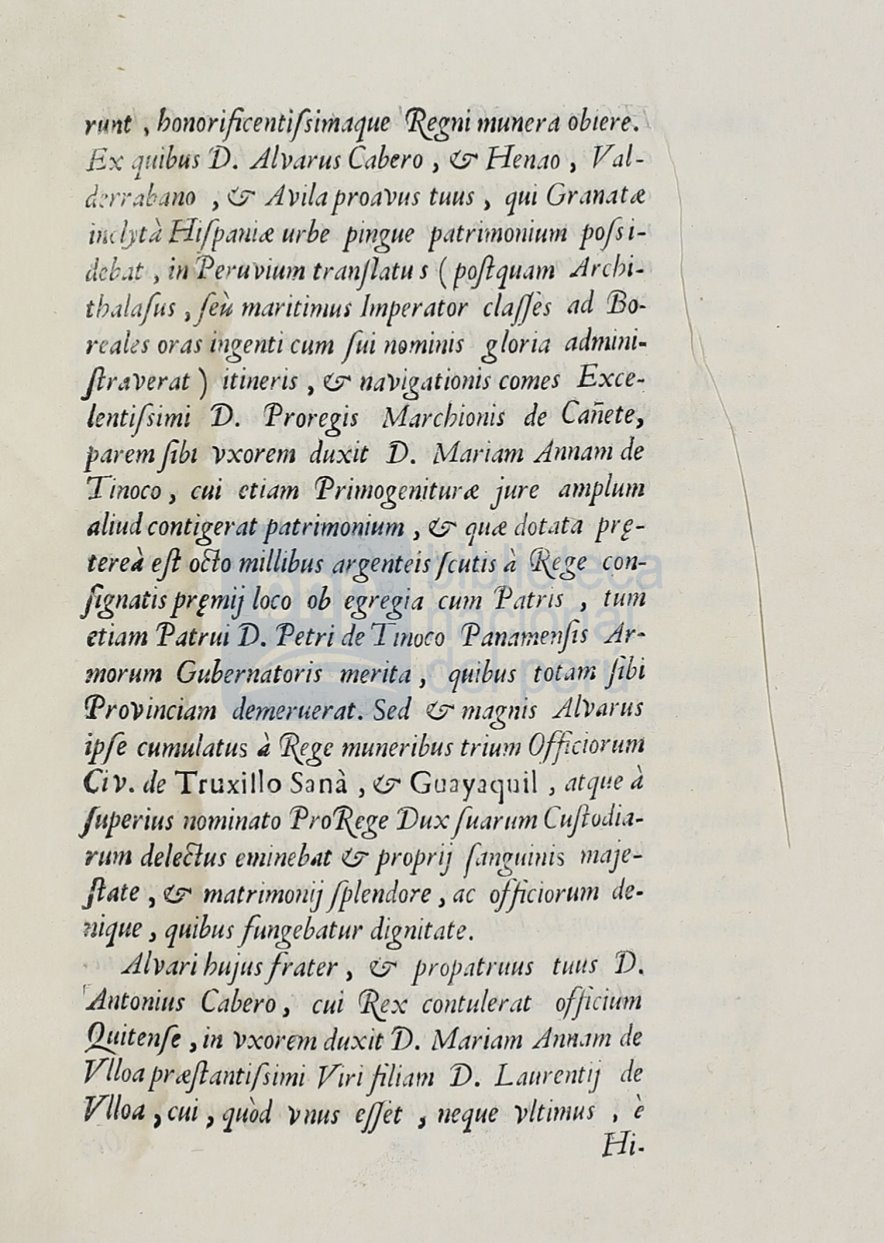 runt , honorificentiſsimaque Regni munera obiere.
Ex quibus D. Alvarus Cabero , & Henao , Val-
derrabano , & Avila proavus tuus , qui Granatæ
inclytà Hiſpaniæ urbe pingue patrimonium poſsi-
debat , in Peruvium tranſlatu s ( poſtquam Archi-
thalaſus , ſeù maritimus Imperator claſſes ad Bo-
reales oras ingenti cum ſui nominis gloria admini-
ſtraverat ) itineris , & navigationis comes Exce-
lentiſsimi D. Proregis Marchionis de Cañete,
parem ſibi vxorem duxit D. Mariam Annam de
Tinoco , cui etiam Primogenituræ jure amplum
aliud contigerat patrimonium , & quæ dotata prę-
tereà eſt octo millibus argenteis ſcutis à Rege con-
ſignatis pręmij loco ob egregia cum Patris , tum
etiam Patrui D. Petri de Tinoco Panamenſis Ar-
morum Gubernatoris merita , quibus totam ſibi
Provinciam demeruerat. Sed & magnis Alvarus
ipſe cumulatus à Rege muneribus trium Officiorum
Civ. de Truxillo Sanà , & Guayaquil , atque à
ſuperius nominato ProRege Dux ſuarum Cuſtodia-
rum delectus eminebat & proprij ſanguinis maje-
ſtate , & matrimonij ſplendore , ac officiorum de-
nique , quibus fungebatur dignitate.
Alvari hujus frater , & propatruus tuus D.
Antonius Cabero , cui Rex contulerat officium
Quitenſe , in vxorem duxit D. Mariam Annam de
Vlloa præſtantiſsimi Viri filiam D. Laurentij de
Vlloa , cui , quòd vnus eſſet , neque vltimus , è
Hi-
biblioteca
nacional
del perú